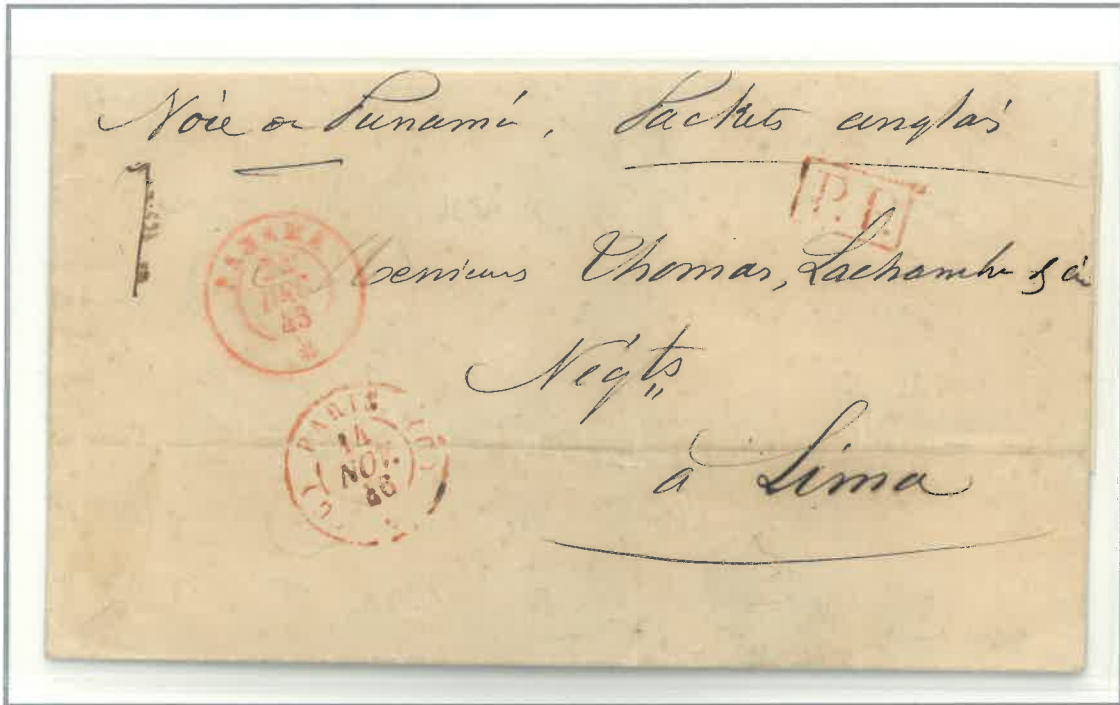 Voie de Panamá, Packets anglais
P.P.
PANAMA
DEC
Messieurs Thomas, Lachambre & Cie
Négts
PARIS (60)
14
NOV.
46
à Lima